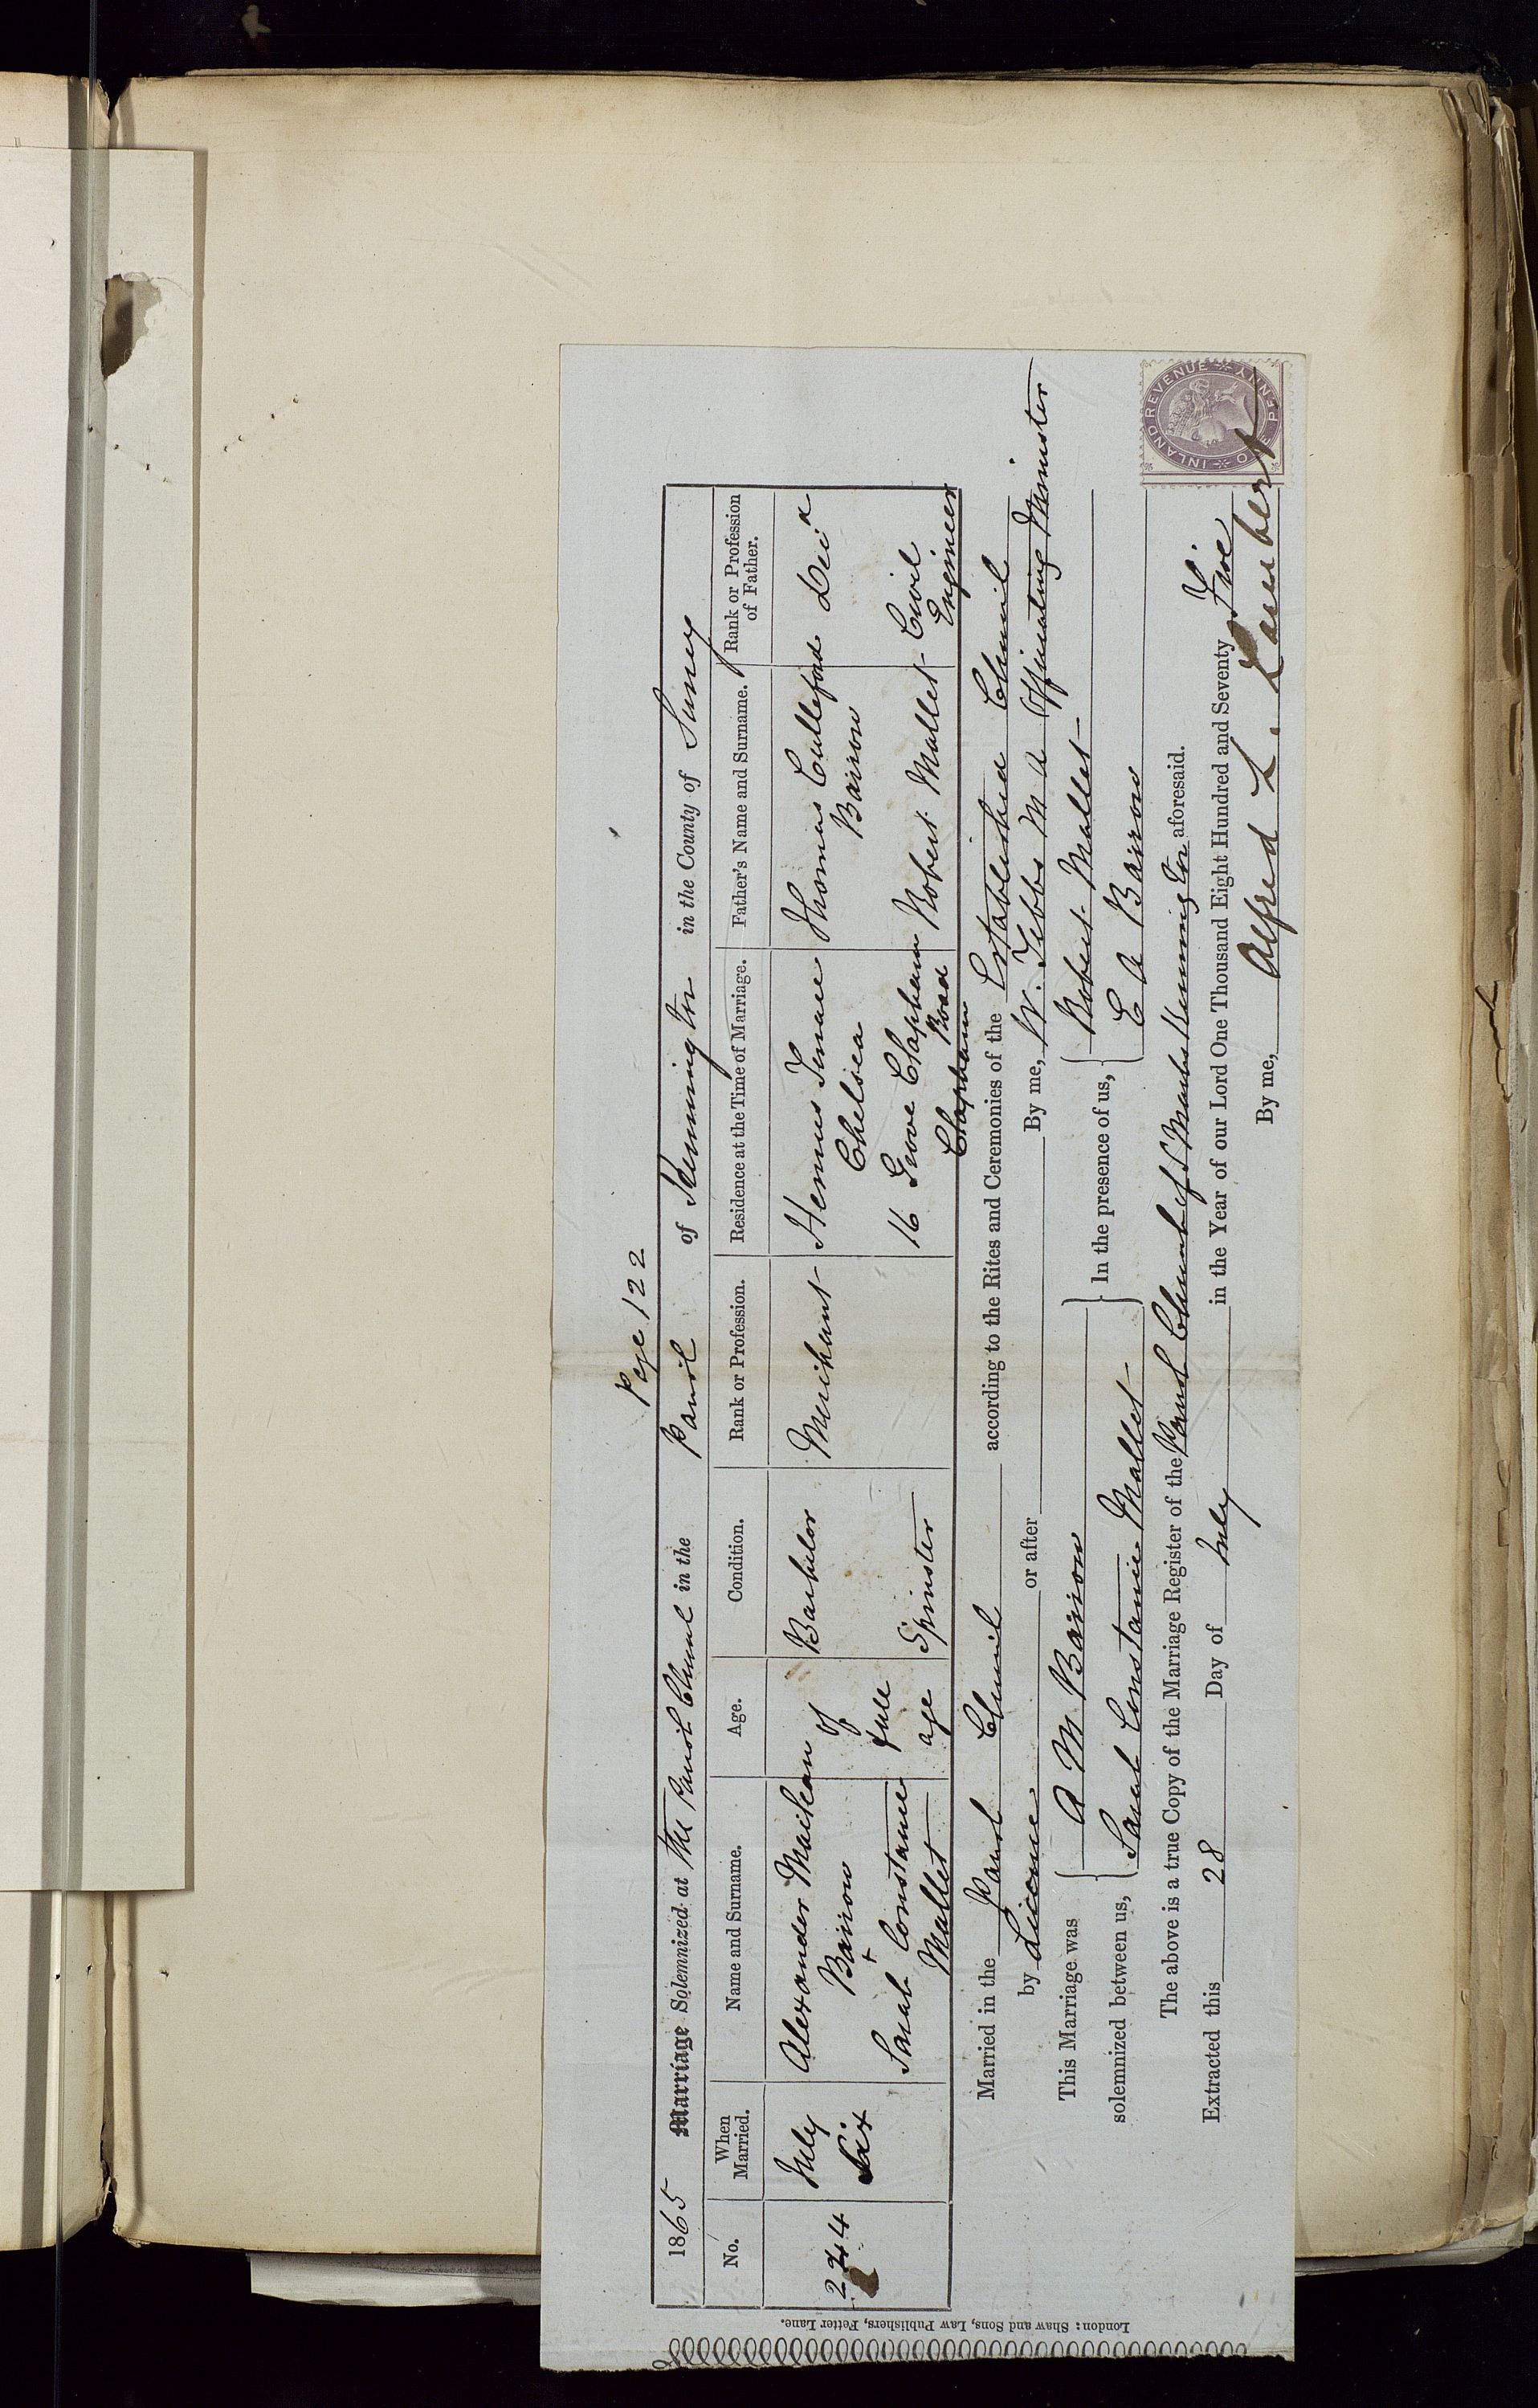 Page 122
1865 Marriage Solemnized at The Parish Church in the Parish of Kennington in the County of Surrey
No. When Married. Name and Surname. Age. Condition. Rank or Profession. Residence at the Time of Marriage. Father's Name and Surname. Rank or Profession of Father.
244 July Six Alexander Mackean Barrow of full age Bachelor Merchant Terrace Chelsea Thomas Culleford Barrow Decd
+
Sarah Constance Mallet Spinster 16 Grove Clapham Road Clapham Robert Mallet Civil Engineer
Married in the Parish Church according to the Rites and Ceremonies of the Established Church
by Licence or after By me, W. Tebbs M A Officiating Minister
This Marriage was solemnized between us, { A M Barrow
Sarah Constance Mallet } In the presence of us, { Robert Mallet
E A Barrow
The above is a true Copy of the Marriage Register of the Parish Church of St Marks Kennington aforesaid.
Extracted this 28 Day of July in the Year of our Lord One Thousand Eight Hundred and Seventy Five
By me, Alfred L. Lambert
INLAND REVENUE ONE PENNY
London: Shaw and Sons, Law Publishers, Fetter Lane.